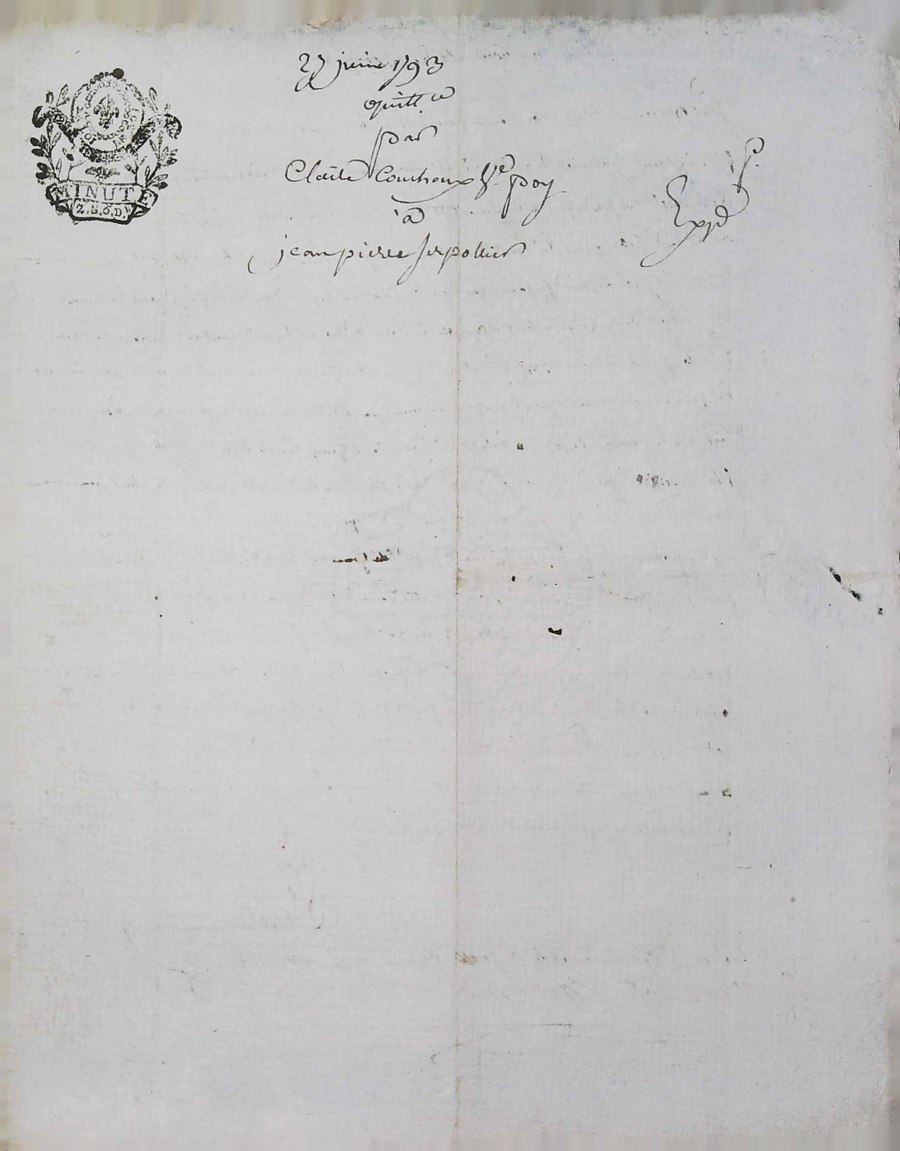 MINUTE
2.S.6.D.
27 juin 1793
quitt.ce
par
Claire Couchoux V.e poy
à
jean pierre
Expé